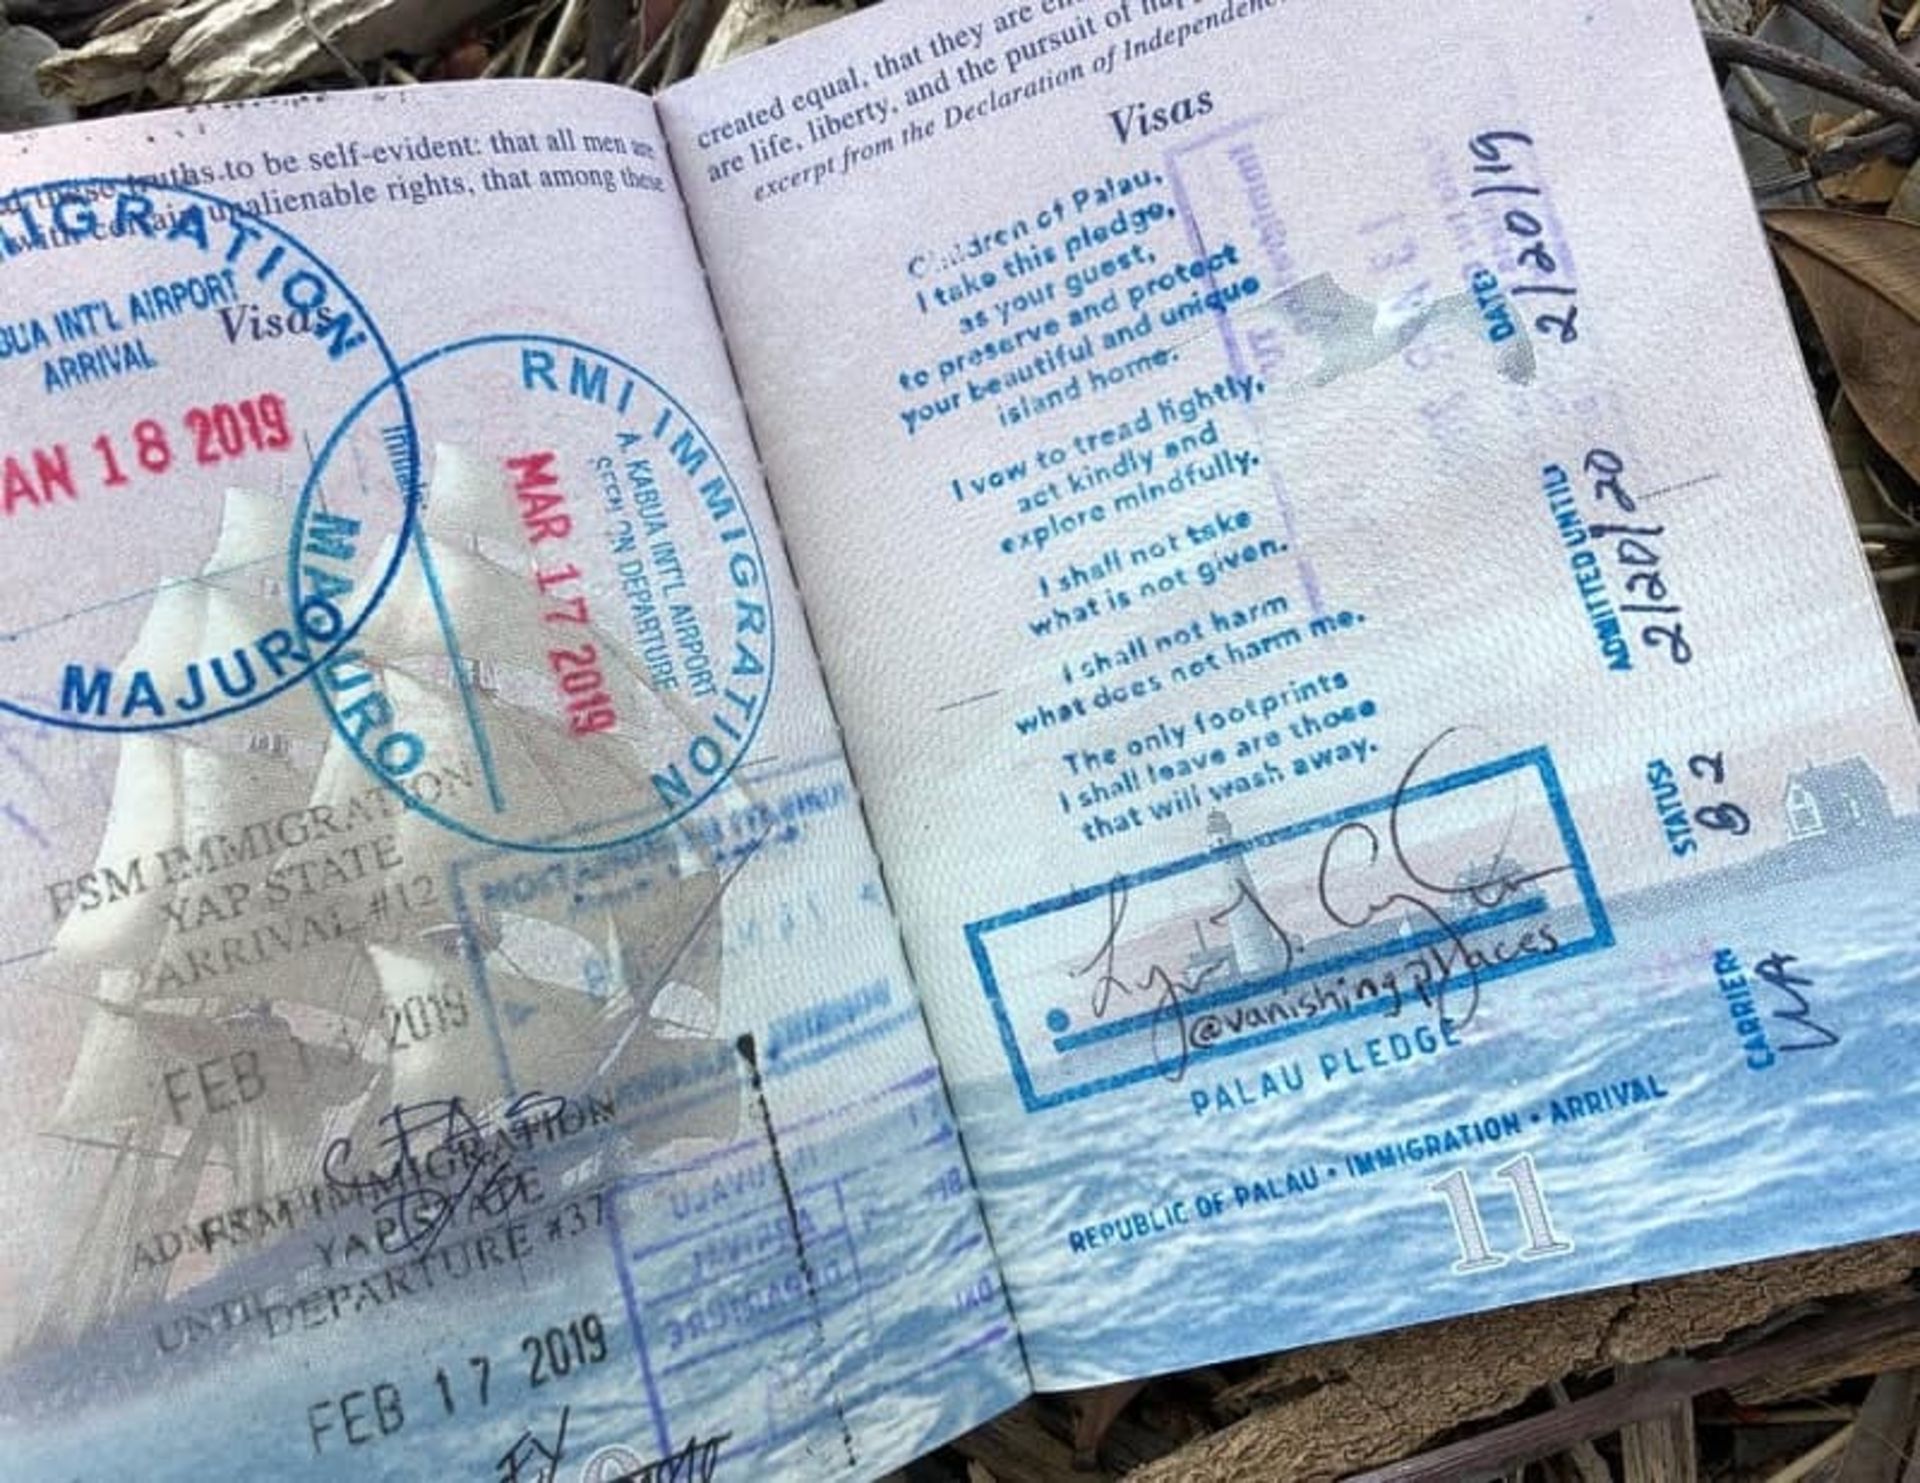 to be self-evident: that all men are
unalienable rights, that among these
IGRATION
BUA INT'L AIRPORT
ARRIVAL
Visas
AN 18 2019
MAJURO
RMI IMMIGRATION
A. KABUA INT'L AIRPORT
DEPARTURE
MAR 17 2019
MAJURO
FSM IMMIGRATION
YAP STATE
ARRIVAL #12
FEB 2019
FSM IMMIGRATION
YAP STATE
DEPARTURE #37
UNTIL
FEB 17 2019
created equal, that they are
are life, liberty, and the pursuit of
excerpt from the Declaration of Independence
Visas
Children of Palau,
I take this pledge,
as your guest,
to preserve and protect
your beautiful and unique
island home.
I vow to tread lightly,
act kindly and
explore mindfully.
I shall not take
what is not given.
I shall not harm
what does not harm me.
The only footprints
I shall leave are those
that will wash away.
@vanishingplaces
PALAU PLEDGE
REPUBLIC OF PALAU • IMMIGRATION • ARRIVAL
11
DATE: 2/20/19
ADMITTED UNTIL: 2/20/20
STATUS: B2
CARRIER: UA
TUVALU
ARRIVAL
DEPARTURE